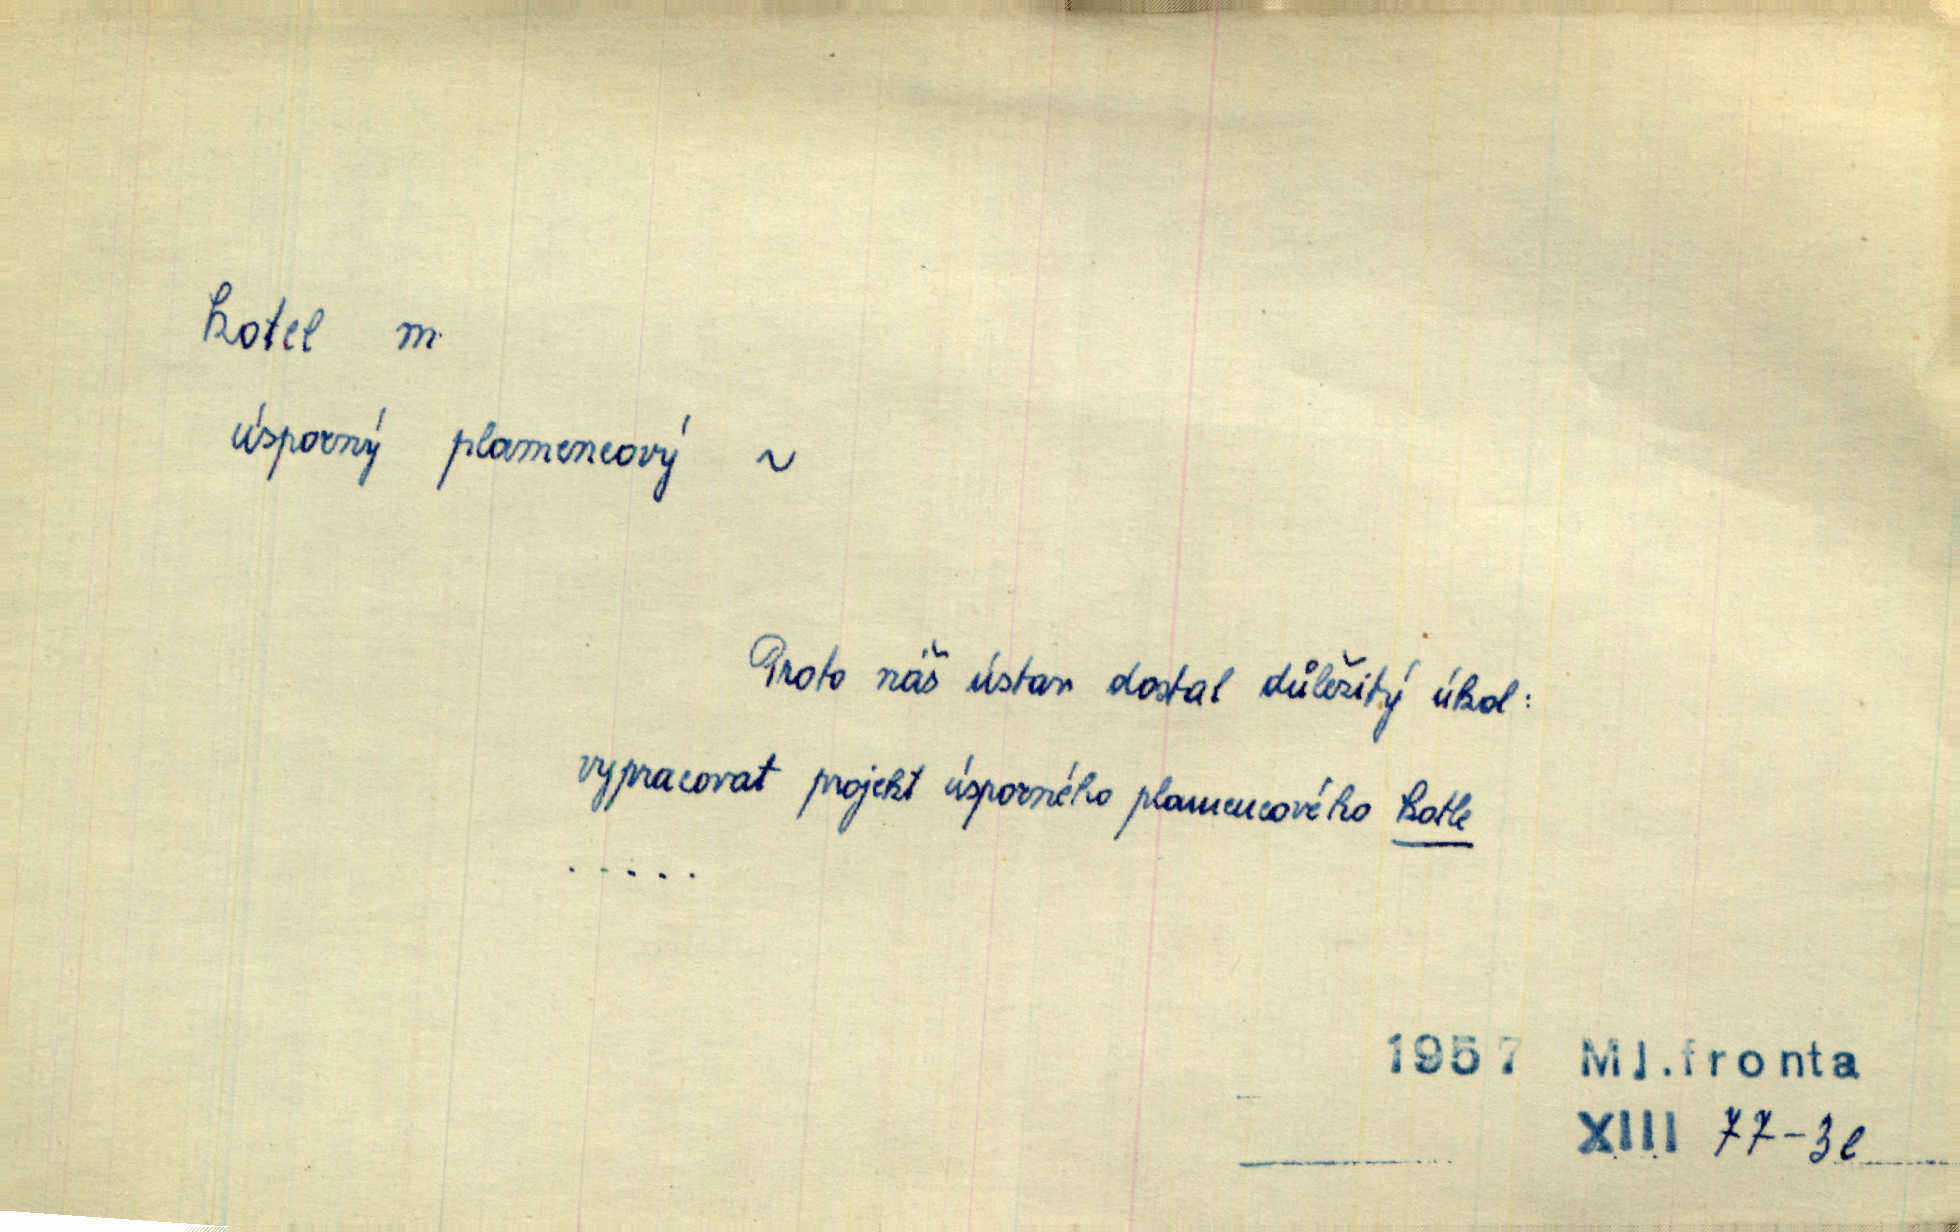 kotel m.
úsporný plamencový ~
Proto náš ústav dostal důležitý úkol:
vypracovat projekt úsporného plamencového kotle
.....
1957 Ml.fronta
XIII 77-3e